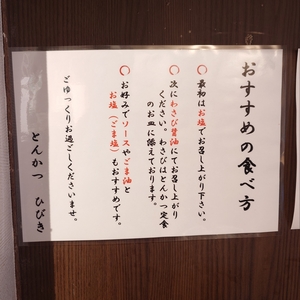 おすすめの食べ方
○ 最初はお塩でお召し上がり下さい。
○ 次にわさび醤油にてお召し上がり
ください。わさびはとんかつ定食
のお皿に添えております。
○ お好みでソースやごま油と
お塩(ごま塩)もおすすめです。
ごゆっくりお過ごしくださいませ。
とんかつ ひびき